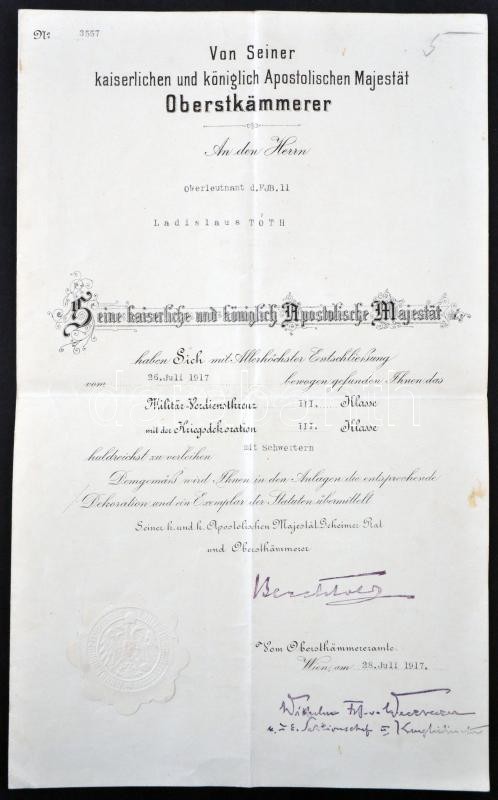 No: 3557
5
Von Seiner
kaiserlichen und königlich Apostolischen Majestät
Oberstkämmerer
An den Herrn
Oberleutnant d.FJB.11
Ladislaus TÓTH
Seine kaiserliche und königlich Apostolische Majestät
haben Sich mit Allerhöchster Entschließung
vom 26.Juli 1917 bewogen gefunden Ihnen das
Militär-Verdienstkreuz III. Klasse
mit der Kriegsdekoration III. Klasse
mit Schwertern
huldreichst zu verleihen
Demgemäß wird Ihnen in den Anlagen die entsprechende
Dekoration und ein Exemplar der Statuten übermittelt
Seiner k. und k. Apostolischen Majestät Geheimer Rat
und Oberstkämmerer
Berchtold
Vom Oberstkämmereramte
Wien, am 28.Juli 1917.
Wilhelm Frh. v.
k. u. k. Sektionschef u. Kanzleidirektor